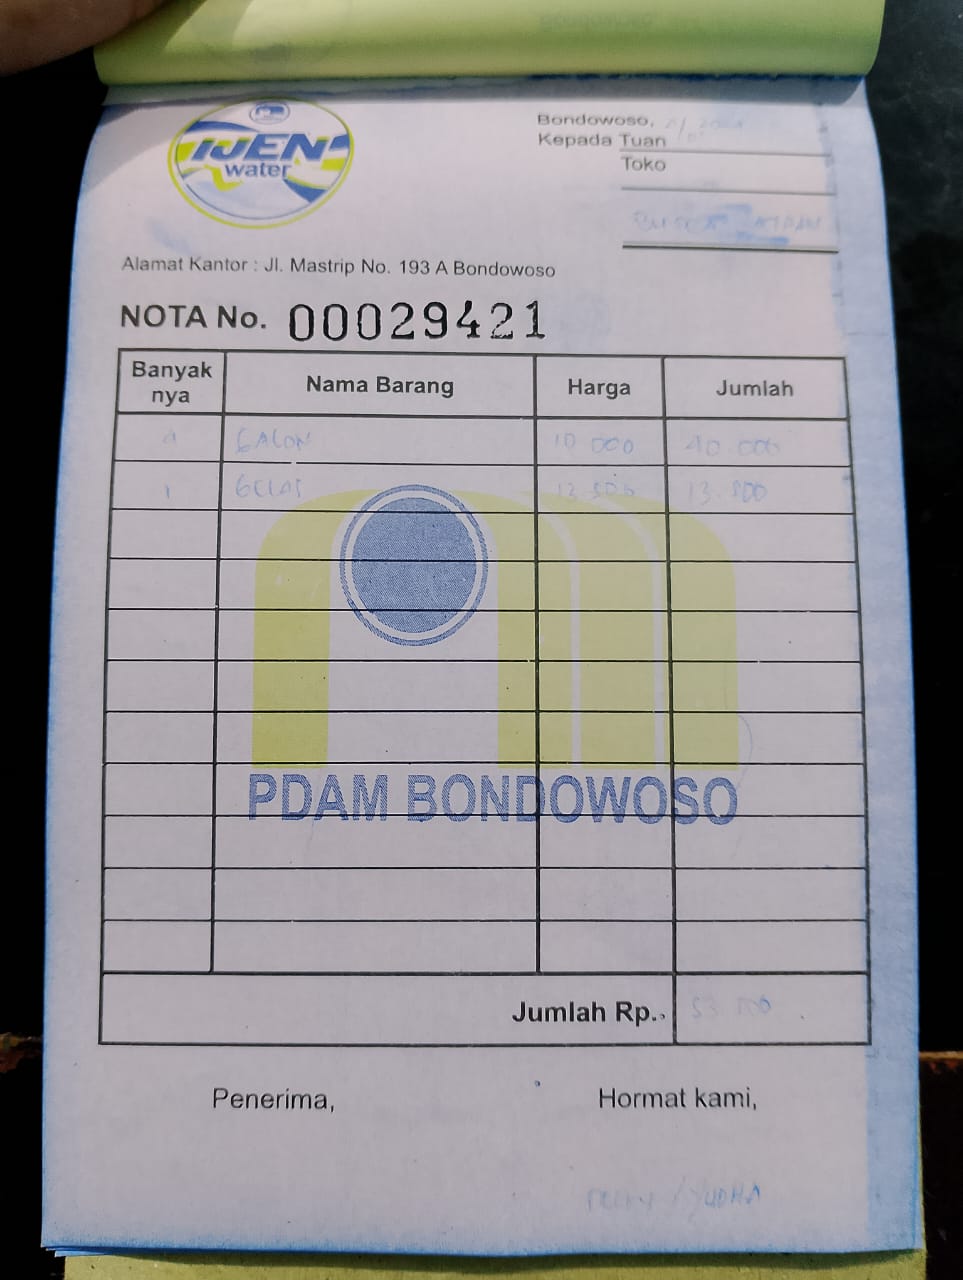 IJEN
water
Bondowoso,
Kepada Tuan
Toko
Alamat Kantor : Jl. Mastrip No. 193 A Bondowoso
NOTA No. 00029421
Banyak nya Nama Barang Harga Jumlah
4 GALON 10.000 40.000
1 GELAS 13.500 13.500
PDAM BONDOWOSO
Jumlah Rp. 53.500
Penerima, Hormat kami,
/YUDHA